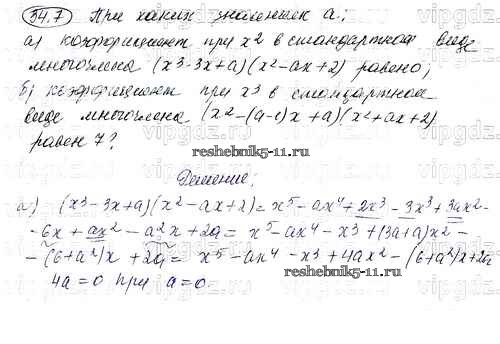 34.7 При каких значениях a:
а) коэффициент при x2 в стандартном виде
многочлена (x3-3x+a)(x2-ax+2) равено;
б) коэффициент при x3 в стандартном
виде многочлена (x2-(a-1)x+a)(x2+ax+2)
равен 7?
reshebnik5-11.ru
Решение:
а) (x3-3x+a)(x2-ax+2)=x5-ax4+2x3-3x3+3ax2-
-6x+ax2-a2x+2a= x5-ax4-x3+(3a+a)x2-
-(6+a2)x+2a= x5-ax4-x3+4ax2-(6+a2)x+2a
4a=0 при a=0.
reshebnik5-11.ru
vipgdz.com